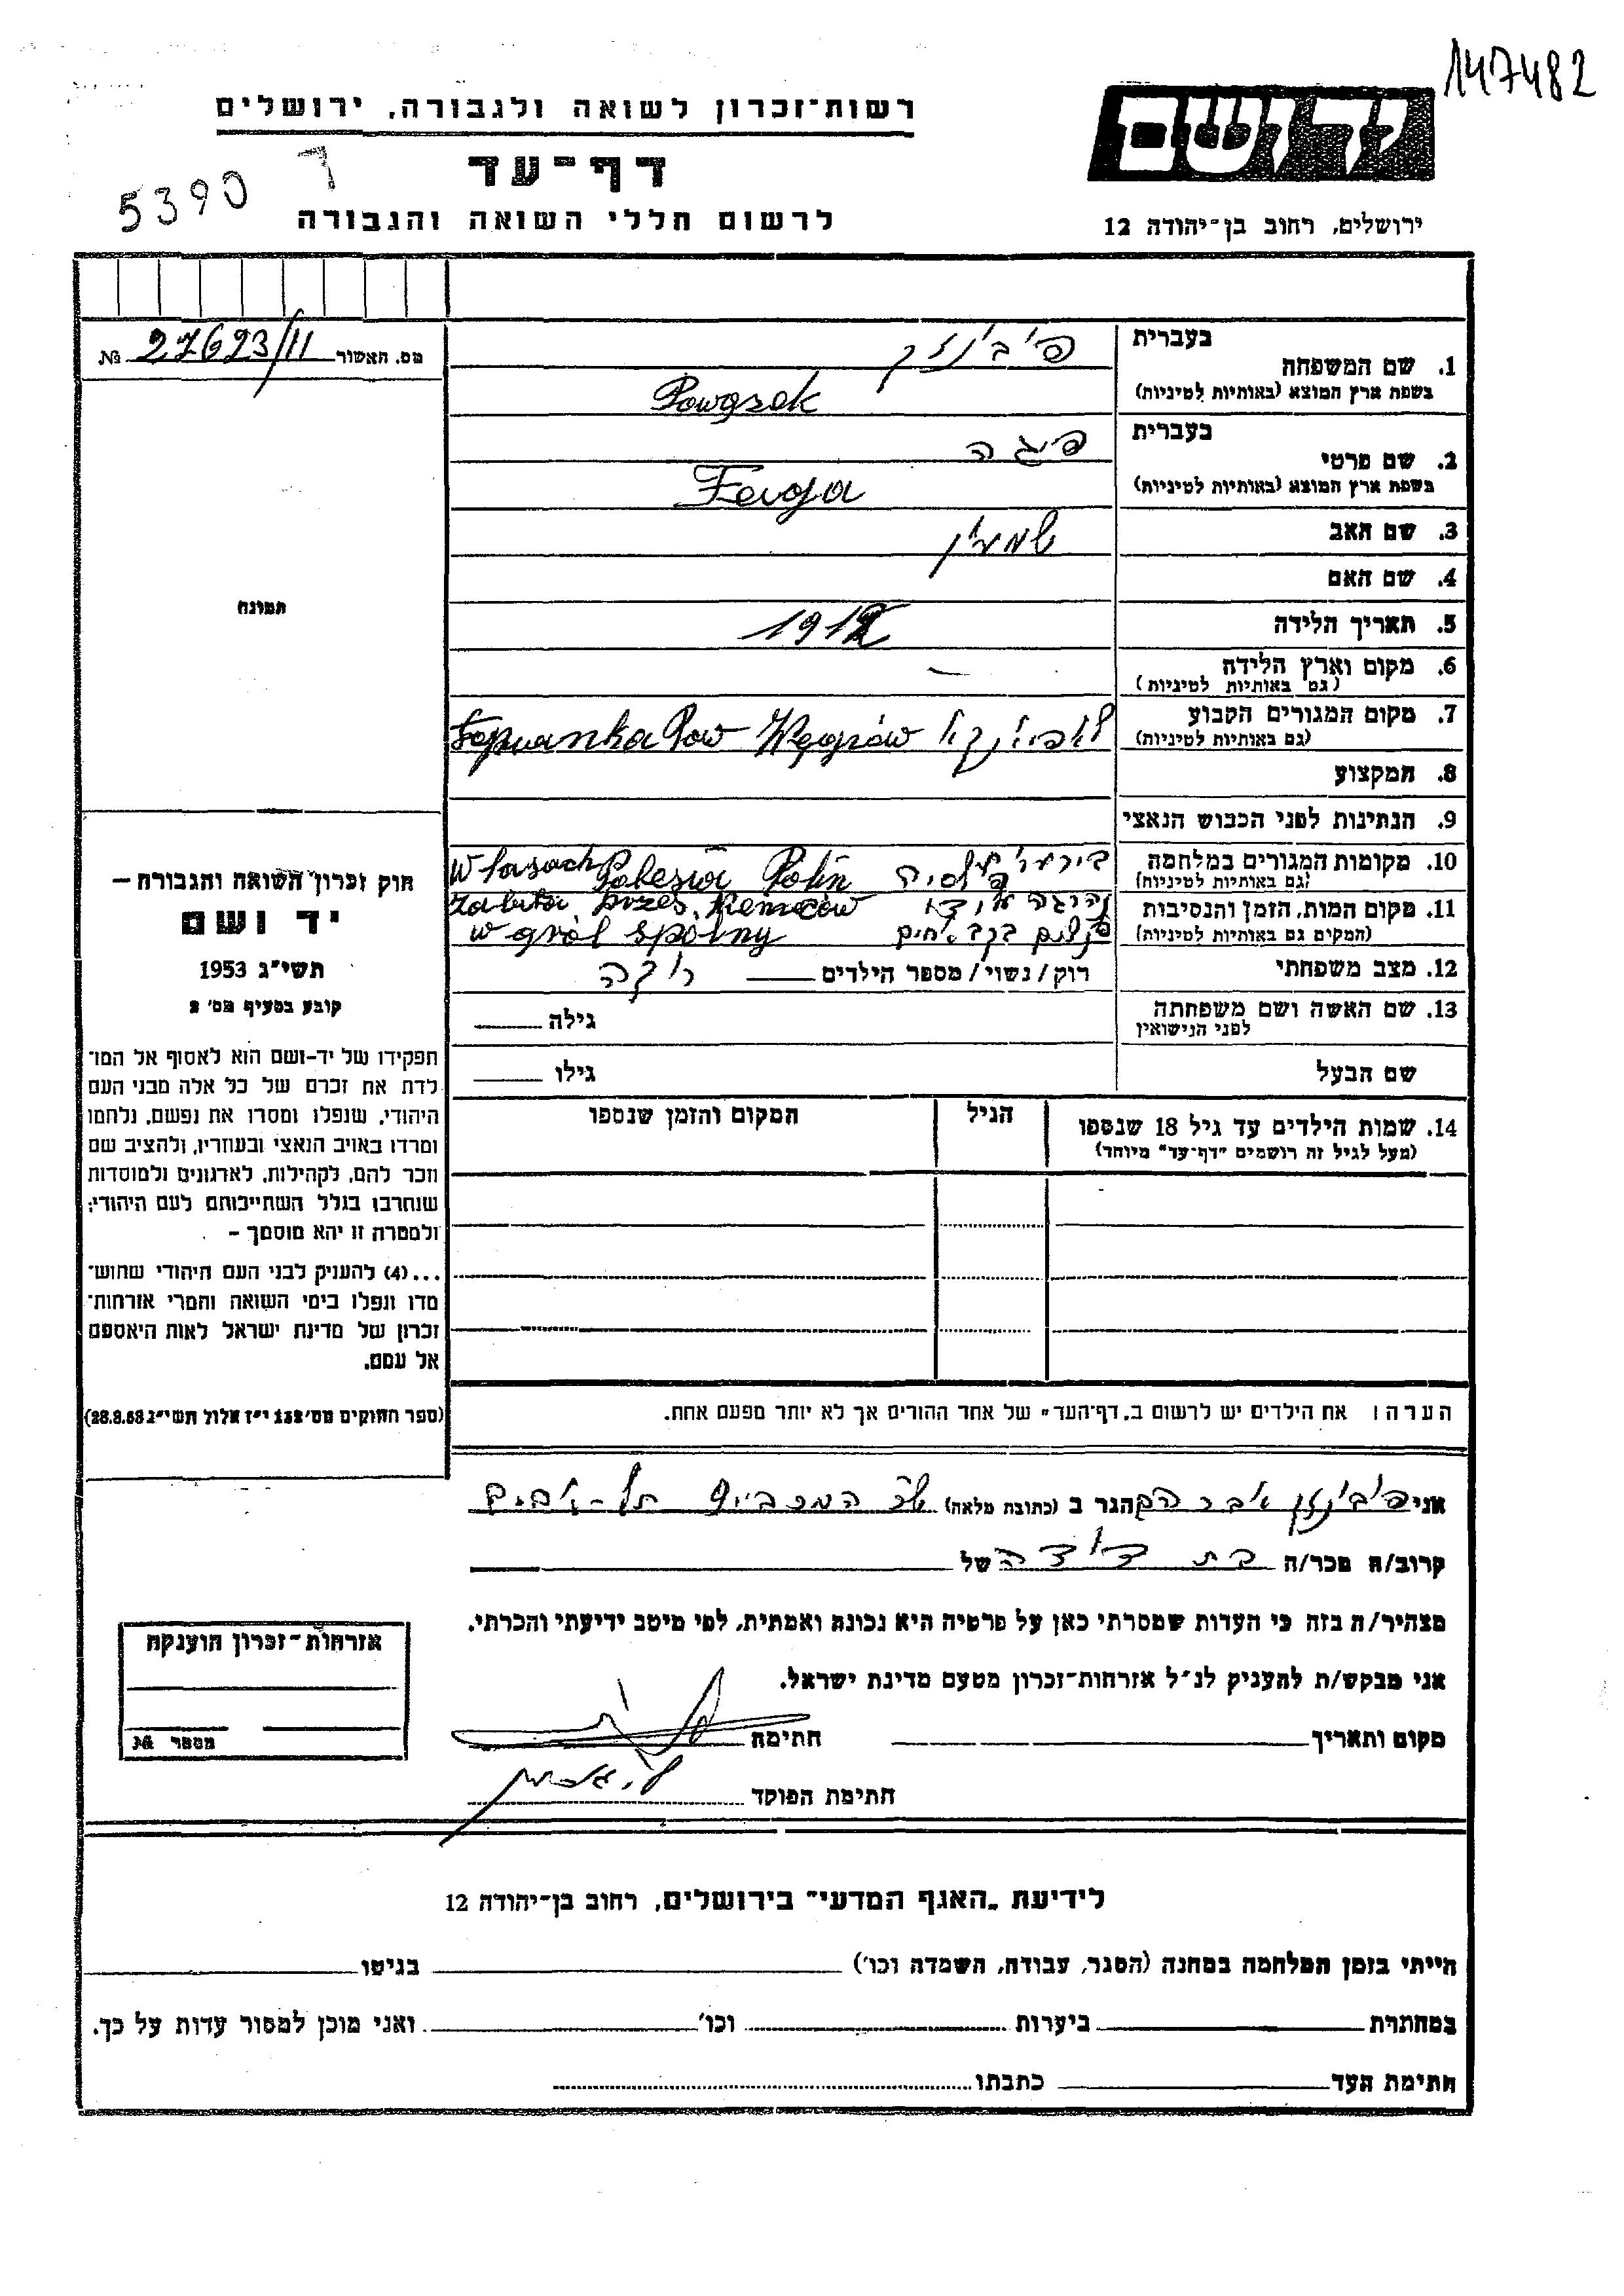 147482
רשות־זכרון לשואה ולגבורה, ירושלים
יד ושם
דף־עד
5390 ד
לרשום חללי השואה והגבורה
ירושלים, רחוב בן־יהודה 12
מס. האשור 27623/11 №
1. שם המשפחה
בעברית
בשפת ארץ המוצא (באותיות לטיניות)
Powązek
2. שם פרטי
בעברית פיגה
בשפת ארץ המוצא (באותיות לטיניות)
Fejga
3. שם האב שמעון
4. שם האם
5. תאריך הלידה 1912
6. מקום וארץ הלידה —
(גם באותיות לטיניות)
7. מקום המגורים הקבוע Pow Węgrów
(גם באותיות לטיניות)
8. המקצוע
9. הנתינות לפני הכבוש הנאצי
10. מקומות המגורים במלחמה
(גם באותיות לטיניות)
W lasach Polesia Polin
11. מקום המות, הזמן והנסיבות
(המקום גם באותיות לטיניות)
zabita przez Niemców
w grób spólny
12. מצב משפחתי רוק/נשוי/מספר הילדים רוקה
13. שם האשה ושם משפחתה
לפני הנישואין
גילה
שם הבעל גילו
14. שמות הילדים עד גיל 18 שנספו הגיל המקום והזמן שנספו
(מעל לגיל זה רושמים "דף־עד" מיוחד)
הערה: את הילדים יש לרשום ב„דף־העד" של אחד ההורים אך לא יותר מפעם אחת.
תמונה
חוק זכרון השואה והגבורה —
יד ושם
תשי"ג 1953
קובע בסעיף מס' 2
תפקידו של יד־ושם הוא לאסוף אל המו־
לדת את זכרם של כל אלה מבני העם
היהודי, שנפלו ומסרו את נפשם, נלחמו
ומרדו באויב הנאצי ובעוזריו, ולהציב שם
וזכר להם, לקהילות, לארגונים ולמוסדות
שנחרבו בגלל השתייכותם לעם היהודי;
ולמטרה זו יהא מוסמך —
...(4) להעניק לבני העם היהודי שהוש־
מדו ונפלו בימי השואה והמרי אזרחות־
זכרון של מדינת ישראל לאות היאספם
אל עמם.
(ספר החוקים מס' 132 י"ז אלול תשי"ג 28.8.53)
אני אברהם הגר ב (כתובת מלאה)
קרוב/ה מכר/ה בת דודה של
מצהיר/ה בזה כי העדות שמסרתי כאן על פרטיה היא נכונה ואמתית, לפי מיטב ידיעתי והכרתי.
אני מבקש/ת להעניק לנ"ל אזרחות־זכרון מטעם מדינת ישראל.
מקום ותאריך חתימה
חתימת הפוקד
אזרחות־זכרון הוענקה
מספר №
לידיעת „האגף המדעי" בירושלים, רחוב בן־יהודה 12
הייתי בזמן המלחמה במחנה (הסגר, עבודה, השמדה וכו') בגיטו
במחתרת ביערות וכו' ואני מוכן למסור עדות על כך.
חתימת העד כתבתו